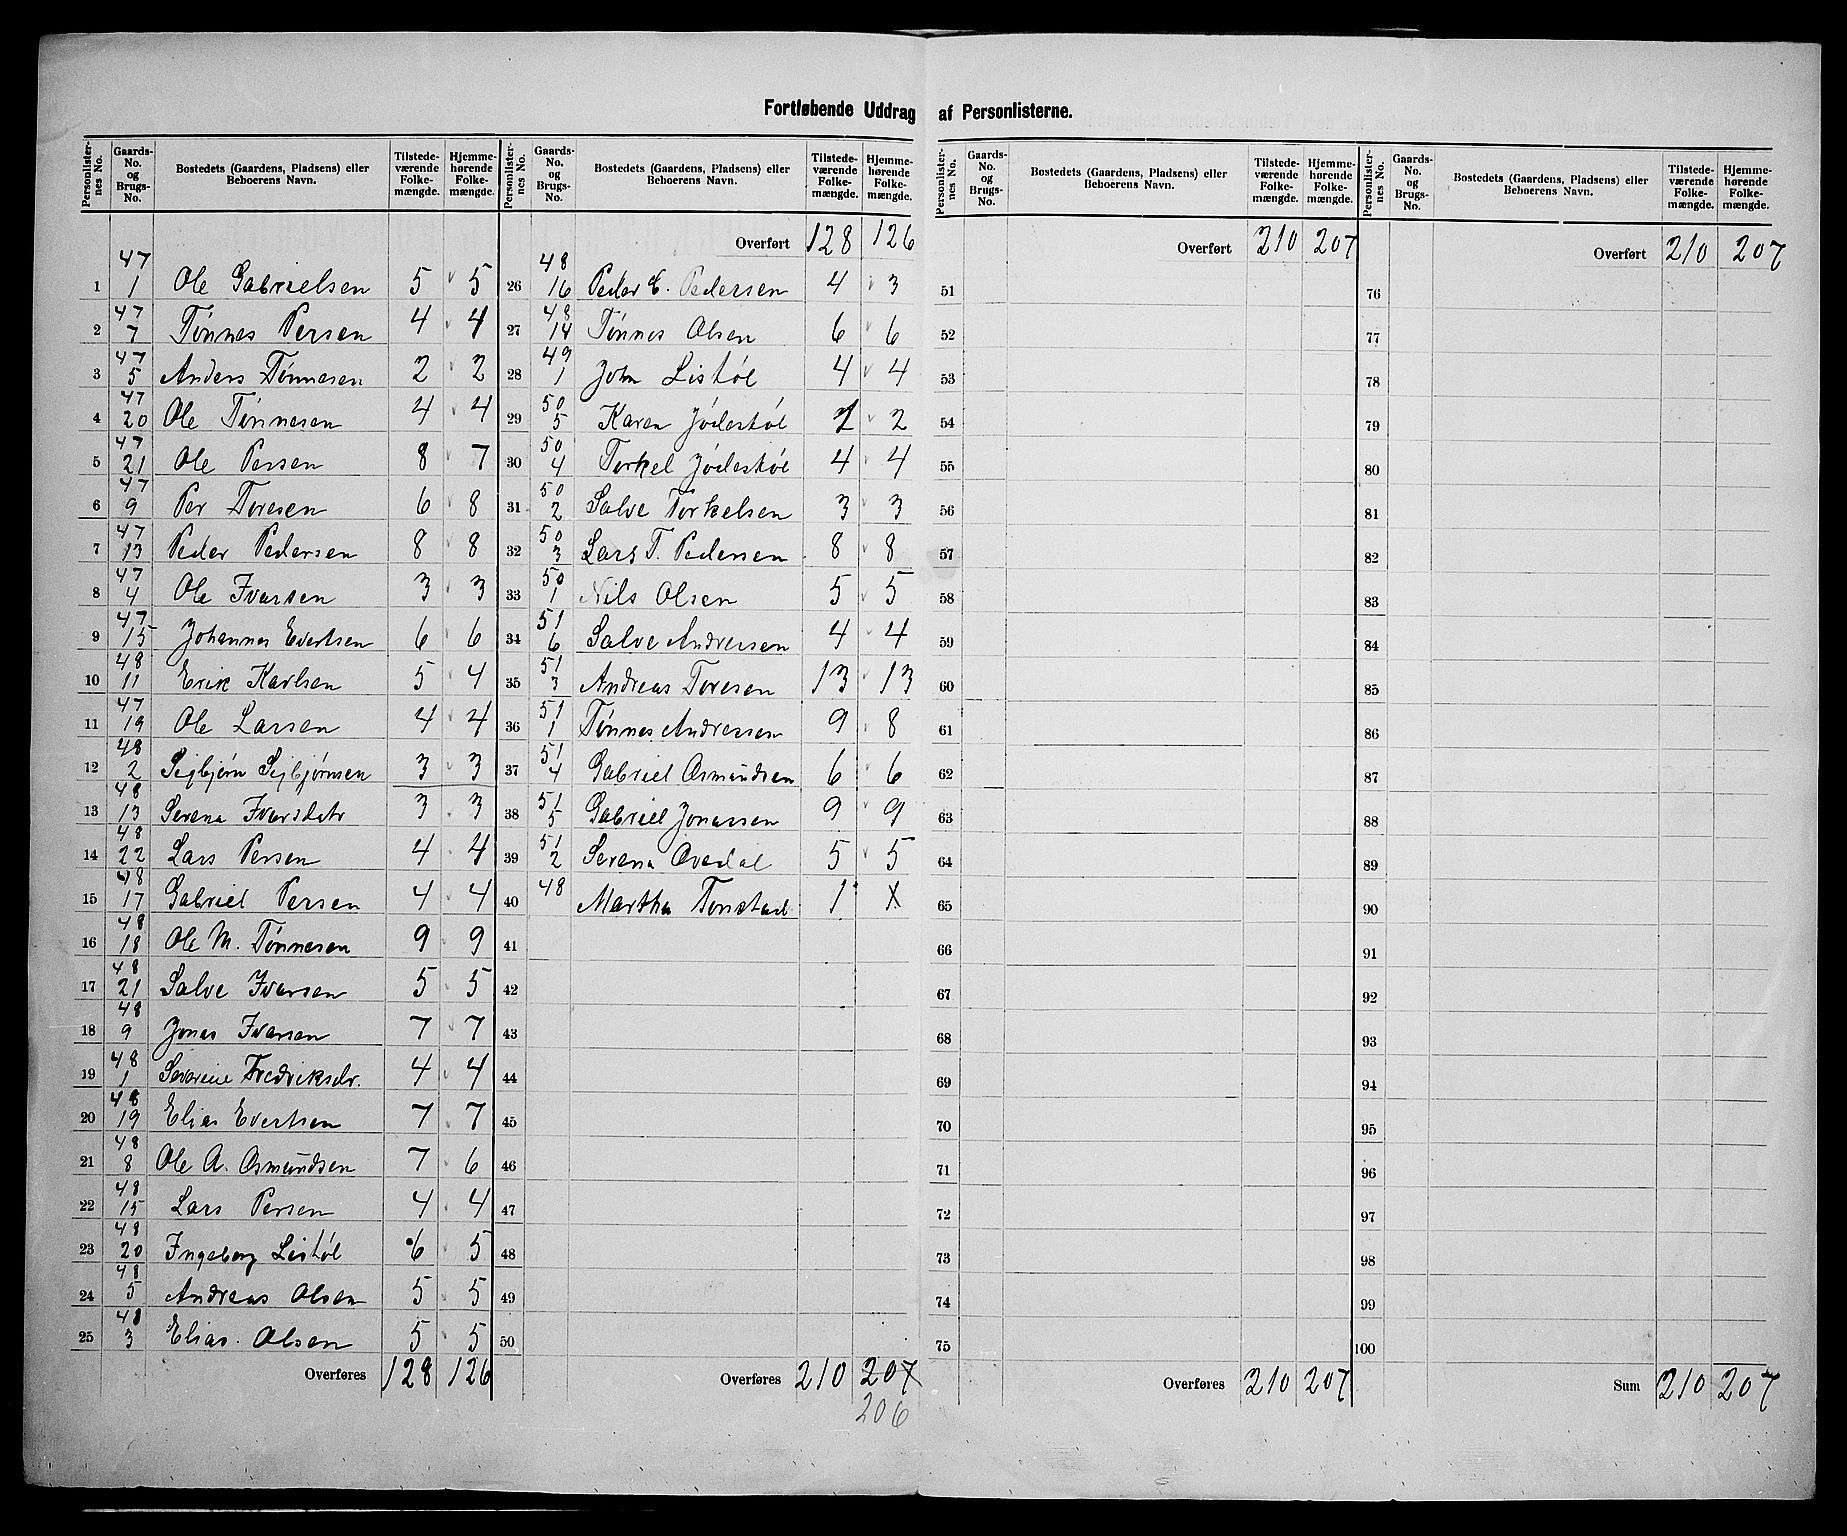 Fortløbende Uddrag af Personlisterne.
Personlister-nes No. | Gaards-No. og Brugs-No. | Bostedets (Gaardens, Pladsens) eller Beboerens Navn. | Tilstede-værende Folke-mængde. | Hjemme-hørende Folke-mængde.
1 47 1 Ole Gabrielsen 5 5
2 47 7 Tønnes Persen 4 4
3 47 5 Anders Tønnesen 2 2
4 47 20 Ole Tønnesen 4 4
5 47 21 Ole Persen 8 7
6 47 9 Per Toresen 6 8
7 47 13 Peder Pedersen 8 8
8 47 4 Ole Ivarsen 3 3
9 47 15 Johannes Evertsen 6 6
10 48 11 Erik Karlsen 5 4
11 47 19 Ole Larsen 4 4
12 48 2 Sigbjørn Sigbjørnsen 3 3
13 48 13 Serena Ivarsdatr 3 3
14 48 22 Lars Persen 4 4
15 48 17 Gabriel Persen 4 4
16 48 18 Ole M. Tønnesen 9 9
17 48 21 Salve Ivarsen 5 5
18 48 9 Jonas Ivarsen 7 7
19 48 1 Severine Fredriksdr. 4 4
20 48 19 Elias Evertsen 7 7
21 48 8 Ole A. Osmundsen 7 6
22 48 15 Lars Persen 4 4
23 48 20 Ingeborg Listøl 6 5
24 48 5 Andreas Olsen 5 5
25 48 3 Elias Olsen 5 5
Overføres 128 126
Personlister-nes No. | Gaards-No. og Brugs-No. | Bostedets (Gaardens, Pladsens) eller Beboerens Navn. | Tilstede-værende Folke-mængde. | Hjemme-hørende Folke-mængde.
Overført 128 126
26 48 16 Peder E. Pedersen 4 3
27 48 14 Tønnes Olsen 6 6
28 49 1 John Listøl 4 4
29 50 5 Karen Jødestøl 2
30 50 4 Torkel Jødestøl 4 4
31 50 2 Salve Torkelsen 3 3
32 50 3 Lars T. Pedersen 8 8
33 50 1 Nils Olsen 5 5
34 51 6 Salve Andresen 4 4
35 51 3 Andreas Toresen 13 13
36 51 1 Tønnes Andressen 9 8
37 51 4 Gabriel Osmundsen 6 6
38 51 5 Gabriel Jonassen 9 9
39 51 2 Serena Ovedal 5 5
40 48 Martha Tonstad 1 x
41
42
43
44
45
46
47
48
49
50
Overføres 210 207
206
Personlister-nes No. | Gaards-No. og Brugs-No. | Bostedets (Gaardens, Pladsens) eller Beboerens Navn. | Tilstede-værende Folke-mængde. | Hjemme-hørende Folke-mængde.
Overført 210 207
51
52
53
54
55
56
57
58
59
60
61
62
63
64
65
66
67
68
69
70
71
72
73
74
75
Overføres 210 207
Personlister-nes No. | Gaards-No. og Brugs-No. | Bostedets (Gaardens, Pladsens) eller Beboerens Navn. | Tilstede-værende Folke-mængde. | Hjemme-hørende Folke-mængde.
Overført 210 207
76
77
78
79
80
81
82
83
84
85
86
87
88
89
90
91
92
93
94
95
96
97
98
99
100
Sum 210 207